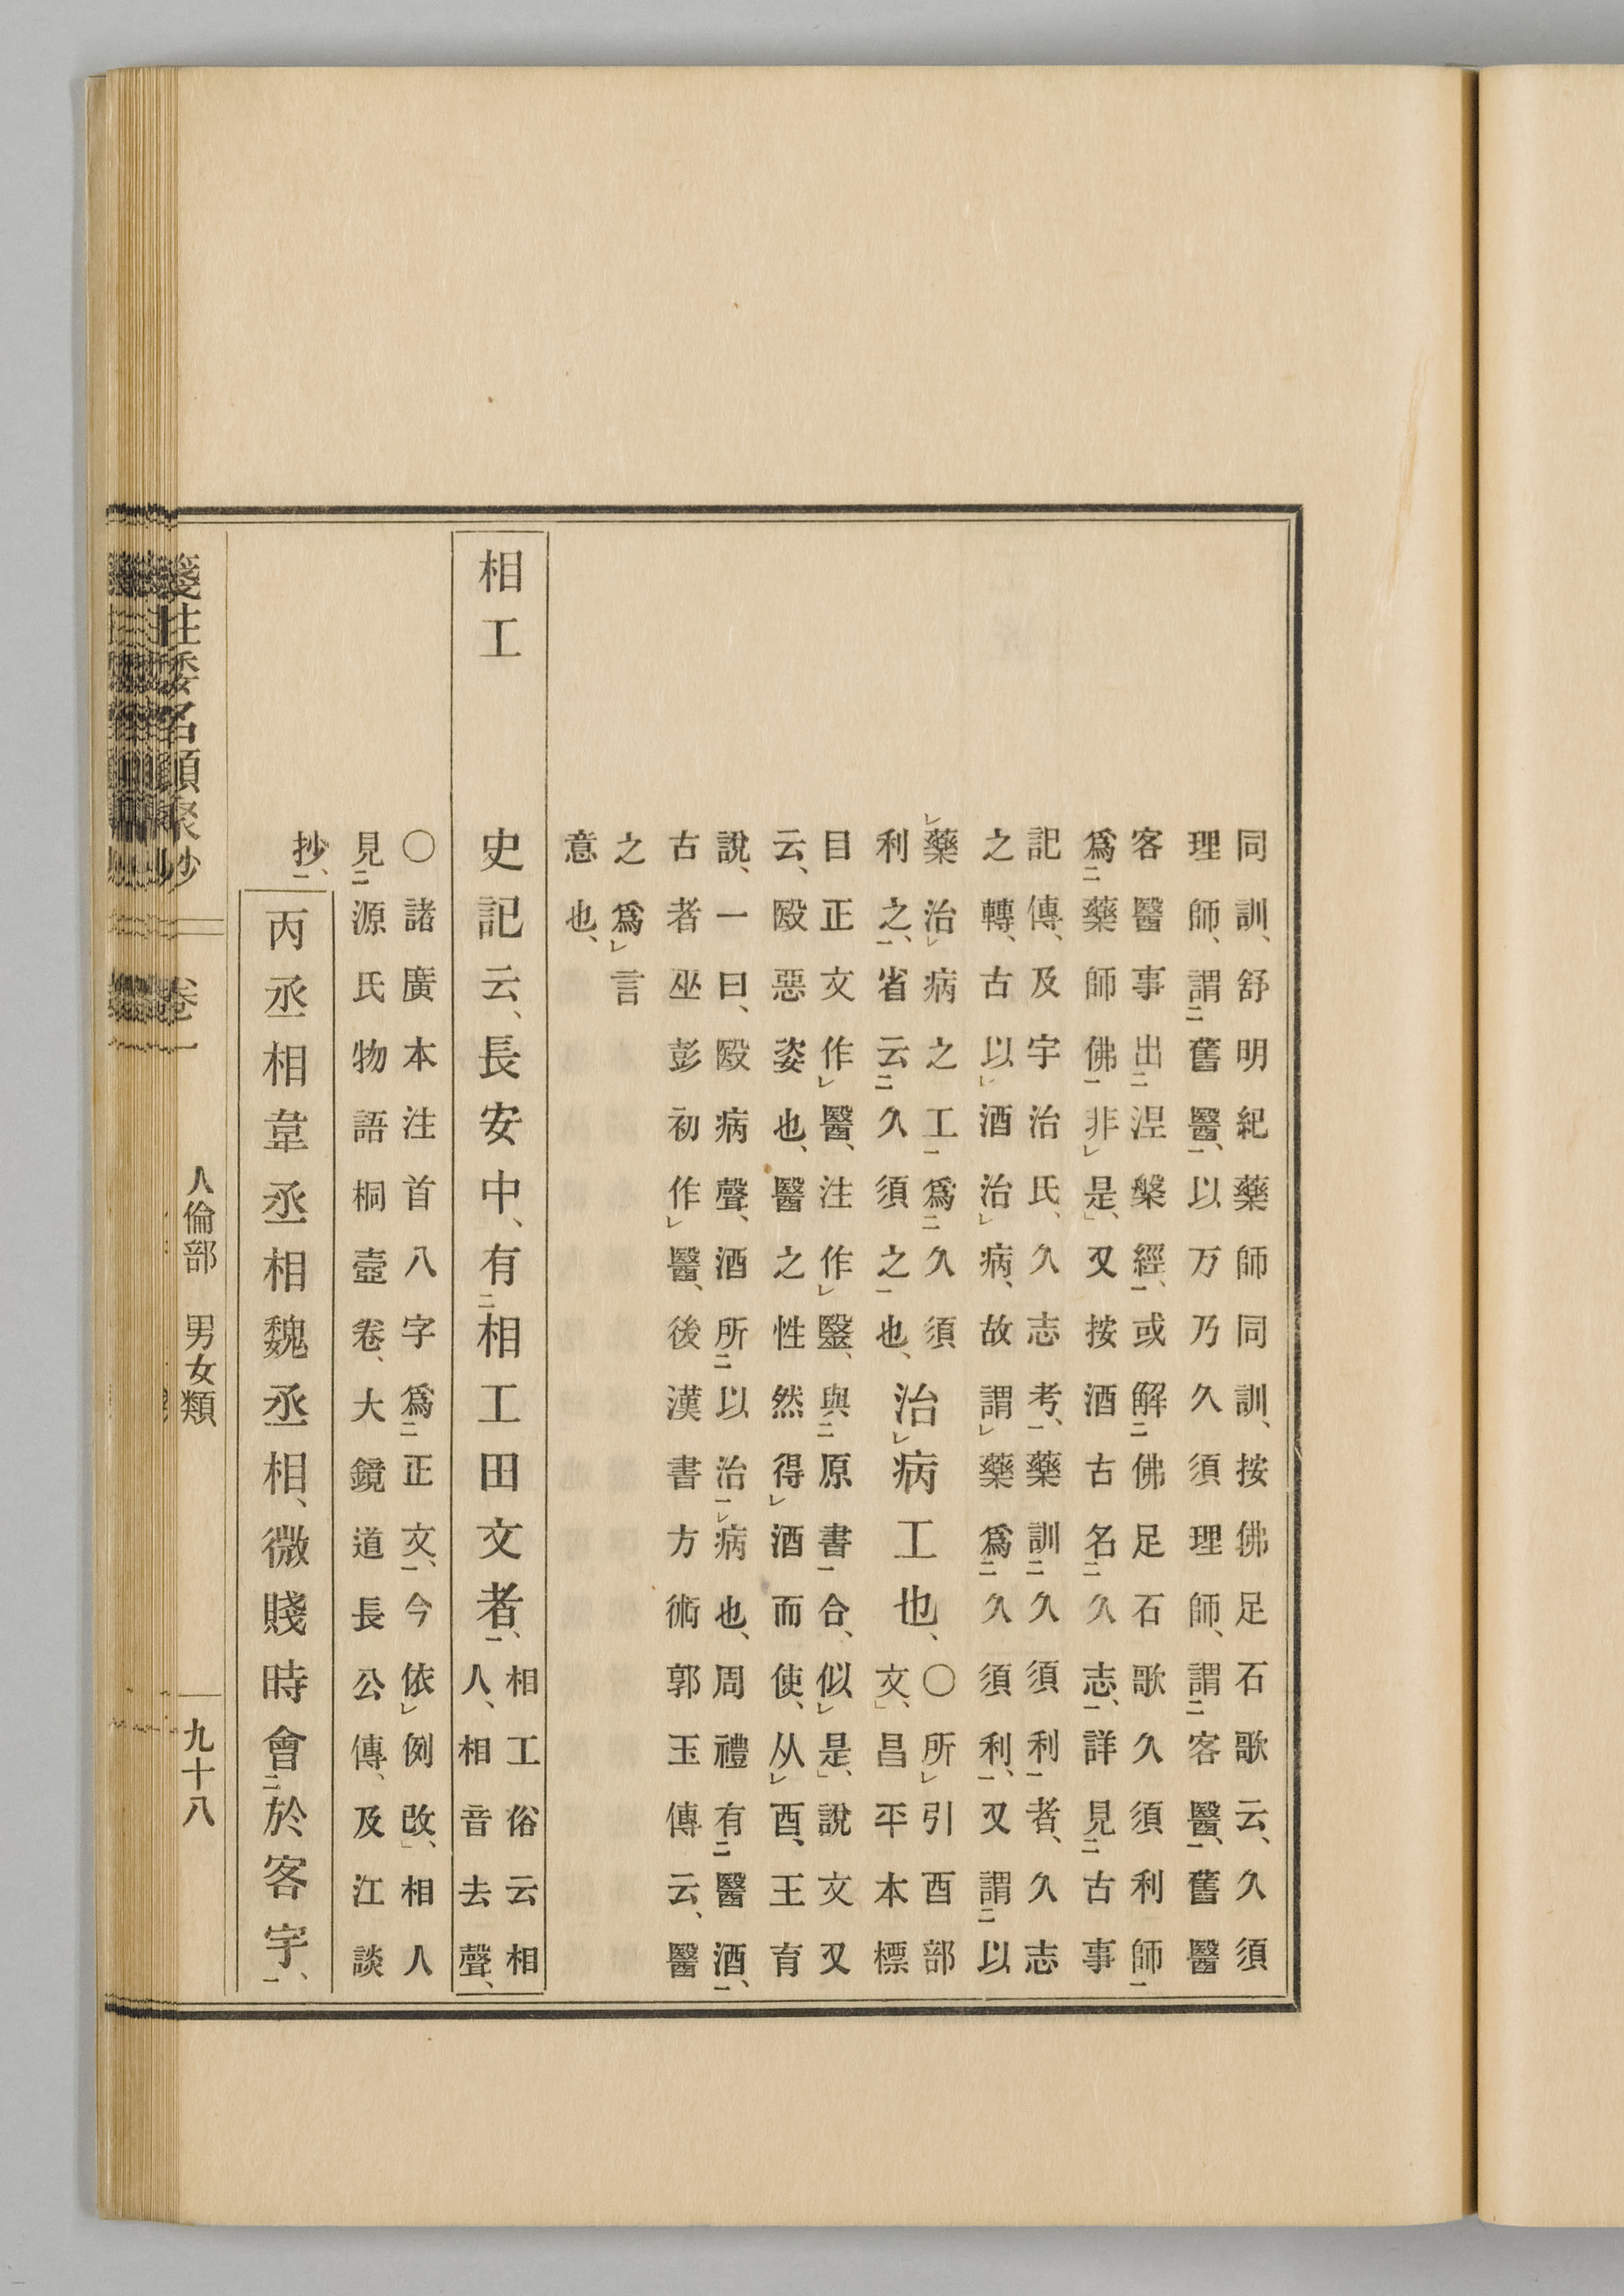 同訓、舒明紀藥師同訓、按佛足石歌云、久須
理師、謂二舊醫一、以万乃久須理師、謂二客醫一、舊醫
客醫事出二涅槃經一、或解二佛足石歌久須利師一
爲二藥師佛一非レ是、又按酒古名二久志一、詳見二古事
記傳、及宇治氏、久志考一、藥訓二久須利一者、久志
之轉、古以レ酒治レ病、故謂レ藥爲二久須利一、又謂二以
レ藥治レ病之工一爲二久須
利之一、省云二久須之一也、
治レ病工也、
○所レ引酉部
文、昌平本標
目正文作レ醫、注作レ毉、與二原書一合、似レ是、說文又
云、殹惡姿也、醫之性然得レ酒而使、从レ酉、王育
說、一曰、殹病聲、酒所二以治一レ病也、周禮有二醫酒一、
古者巫彭初作レ醫、後漢書方術郭玉傳云、醫
之爲レ言
意也、
相工
史記云、長安中、有二相工田文者一、
相工俗云相
人、相音去聲、
○諸廣本注首八字爲二正文一、今依レ例改、相人
見二源氏物語桐壼卷、大鏡道長公傳、及江談
抄一、
丙丞相韋丞相魏丞相、微賤時會二於客宇一、
箋注倭名類聚抄
卷一
人倫部 男女類
九十八